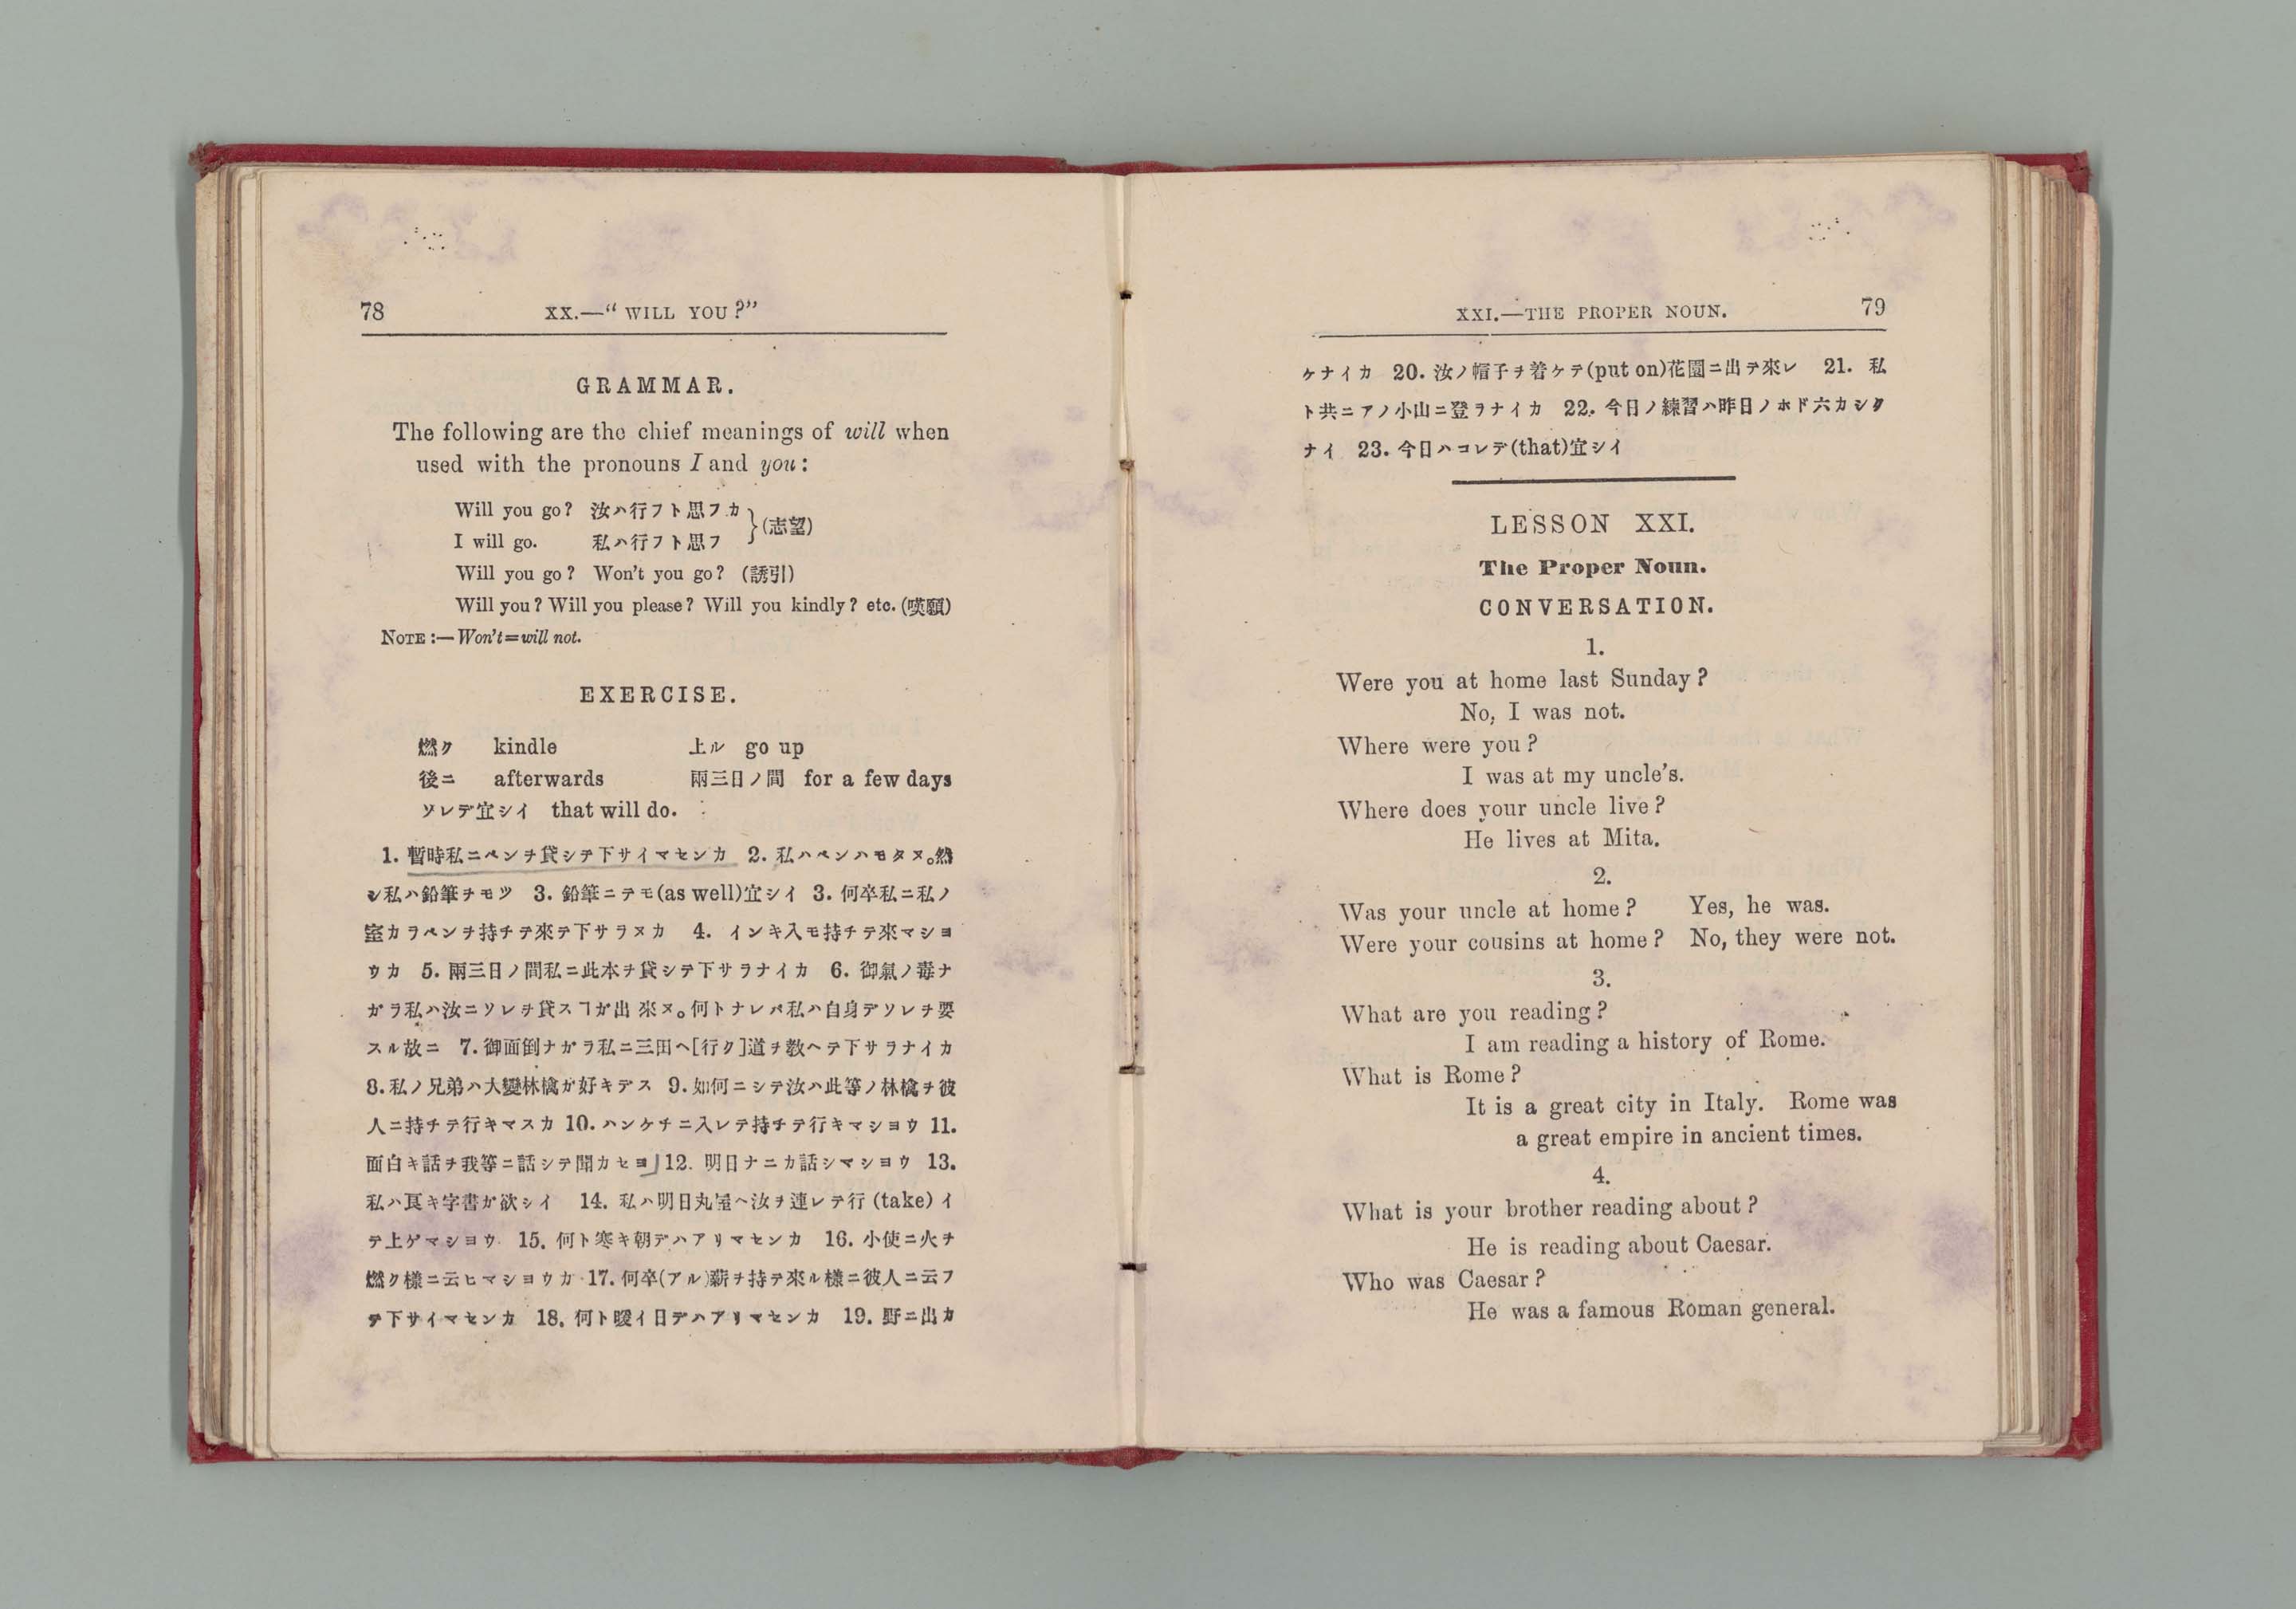 78 XX.—“ WILL YOU ?”
GRAMMAR.
The following are the chief meanings of will when
used with the pronouns I and you :
Will you go ? 汝ハ行フト思フカ
I will go. 私ハ行フト思フ }(志望)
Will you go ? Won't you go ? (誘引)
Will you ? Will you please ? Will you kindly ? etc. (嘆願)
NOTE :—Won't=will not.
EXERCISE.
燃ク kindle 上ル go up
後ニ afterwards 兩三日ノ間 for a few days
ソレデ宜シイ that will do.
1. 暫時私ニペンヲ貸シテ下サイマセンカ 2. 私ハペンハモタヌ。然
シ私ハ鉛筆ヲモツ 3. 鉛筆ニテモ(as well)宜シイ 3. 何卒私ニ私ノ
室カラペンヲ持チテ來テ下サラヌカ 4. インキ入モ持チテ來マショ
ウカ 5. 兩三日ノ間私ニ此本ヲ貸シテ下サラナイカ 6. 御氣ノ毒ナ
ガラ私ハ汝ニソレヲ貸スヿガ出來ヌ。何トナレバ私ハ自身デソレヲ要
スル故ニ 7. 御面倒ナガラ私ニ三田ヘ[行ク]道ヲ敎ヘテ下サラナイカ
8. 私ノ兄弟ハ大變林檎ガ好キデス 9. 如何ニシテ汝ハ此等ノ林檎ヲ彼
人ニ持チテ行キマスカ 10. ハンケチニ入レテ持チテ行キマショウ 11.
面白キ話ヲ我等ニ話シテ聞カセヨ」12. 明日ナニカ話シマショウ 13.
私ハ良キ字書ガ欲シイ 14. 私ハ明日丸屋ヘ汝ヲ連レテ行 (take) イ
テ上ゲマショウ 15. 何ト寒キ朝デハアリマセンカ 16. 小使ニ火ヲ
燃ク樣ニ云ヒマショウカ 17. 何卒(アル)薪ヲ持テ來ル樣ニ彼人ニ云フ
テ下サイマセンカ 18. 何ト暖イ日デハアリマセンカ 19. 野ニ出カ
XXI.—THE PROPER NOUN. 79
ケナイカ 20. 汝ノ帽子ヲ着ケテ(put on)花園ニ出テ來レ 21. 私
ト共ニアノ小山ニ登ラナイカ 22. 今日ノ練習ハ昨日ノホド六カシク
ナイ 23. 今日ハコレデ(that)宜シイ
LESSON XXI.
The Proper Noun.
CONVERSATION.
1.
Were you at home last Sunday ?
No, I was not.
Where were you ?
I was at my uncle's.
Where does your uncle live ?
He lives at Mita.
2.
Was your uncle at home ? Yes, he was.
Were your cousins at home ? No, they were not.
3.
What are you reading ?
I am reading a history of Rome.
What is Rome ?
It is a great city in Italy. Rome was
a great empire in ancient times.
4.
What is your brother reading about ?
He is reading about Caesar.
Who was Caesar ?
He was a famous Roman general.